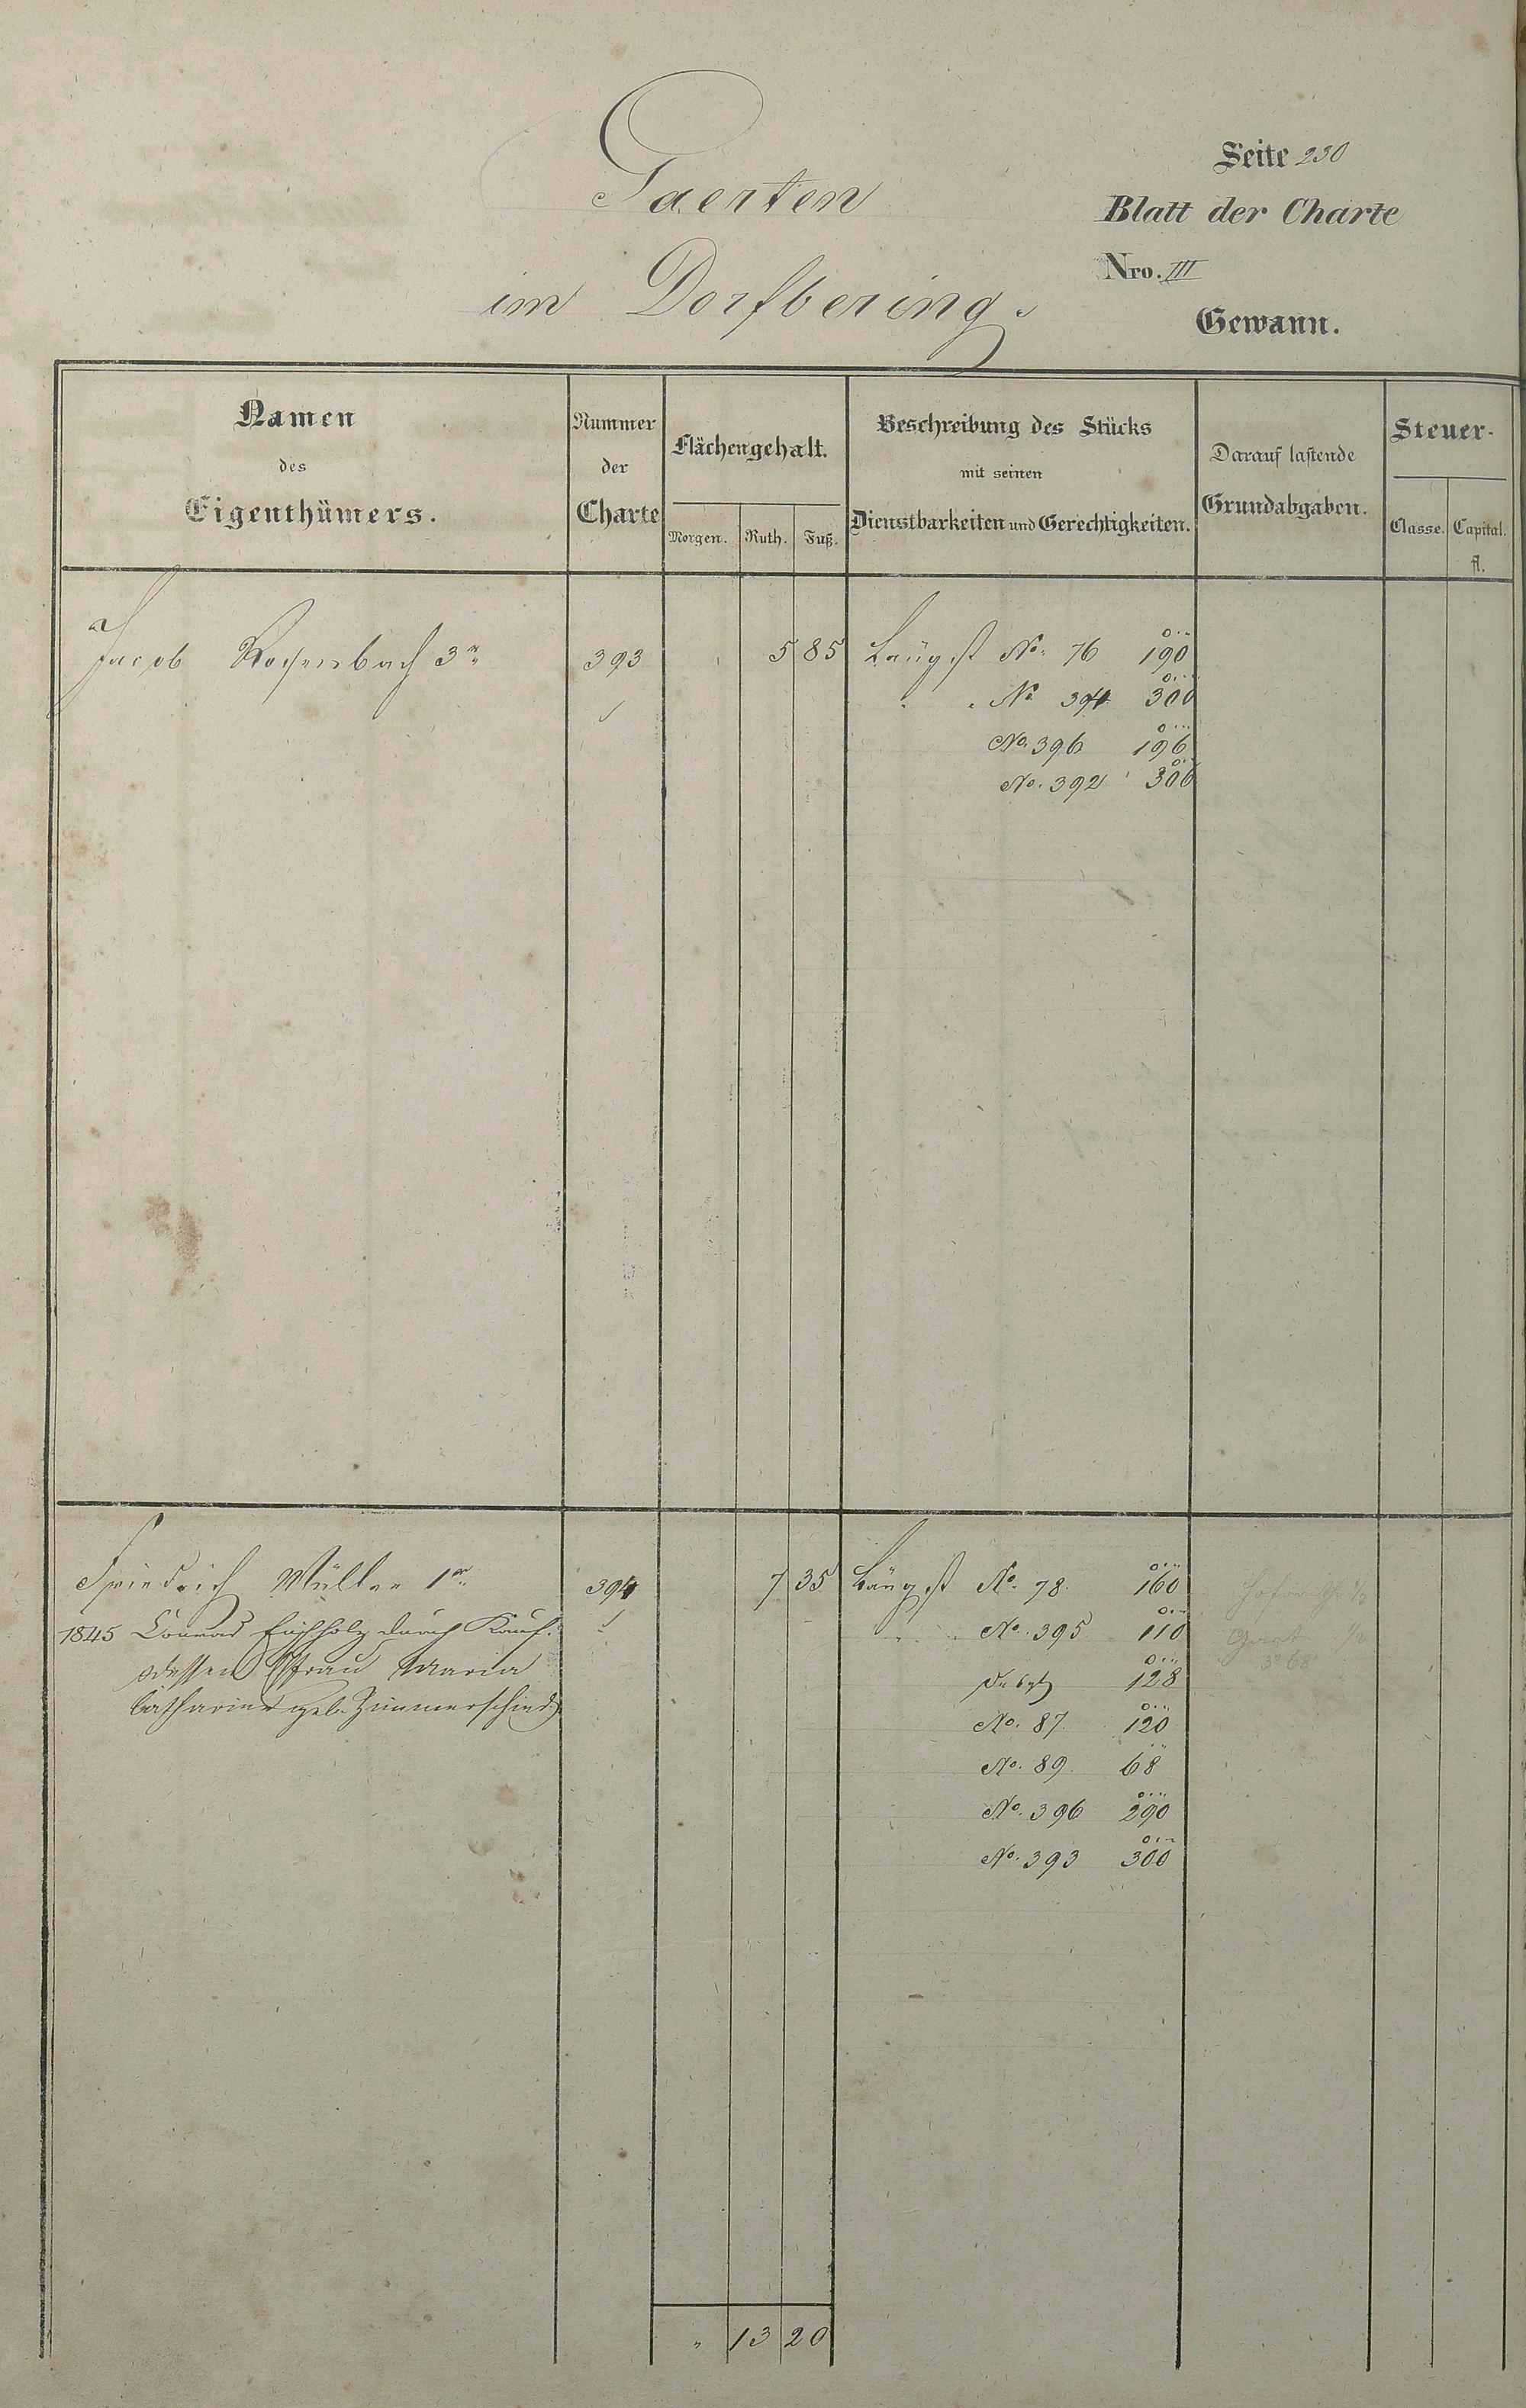 Gaerten
im Dorfbering.
Seite 230
Blatt der Charte
Nro. III
Gewann.
Namen
des
Eigenthümers.
Nummer
der
Charte
Flächengehalt.
Morgen. Ruth. Fuß.
Beschreibung des Stücks
mit seinen
Dienstbarkeiten und Gerechtigkeiten.
Darauf lastende
Grundabgaben.
Steuer-
Classe. Capital.
fl.
Jacob 3r 393 5 85 Längst No. 76 190
" " No 394 300
No. 396 196
No. 392 300
Friedrich Müller 1r 394 7 35 Längst No. 78. 160
1845 Conrad Eichholz durch Kauf. " " No. 395 110
dessen Ehfrau Maria 128
Catharina geb. Zimmerschied
No. 87. 120
No. 89. 68
No. 396 290
No. 393 300
Gart 1/2
3° 68'
" 13 20